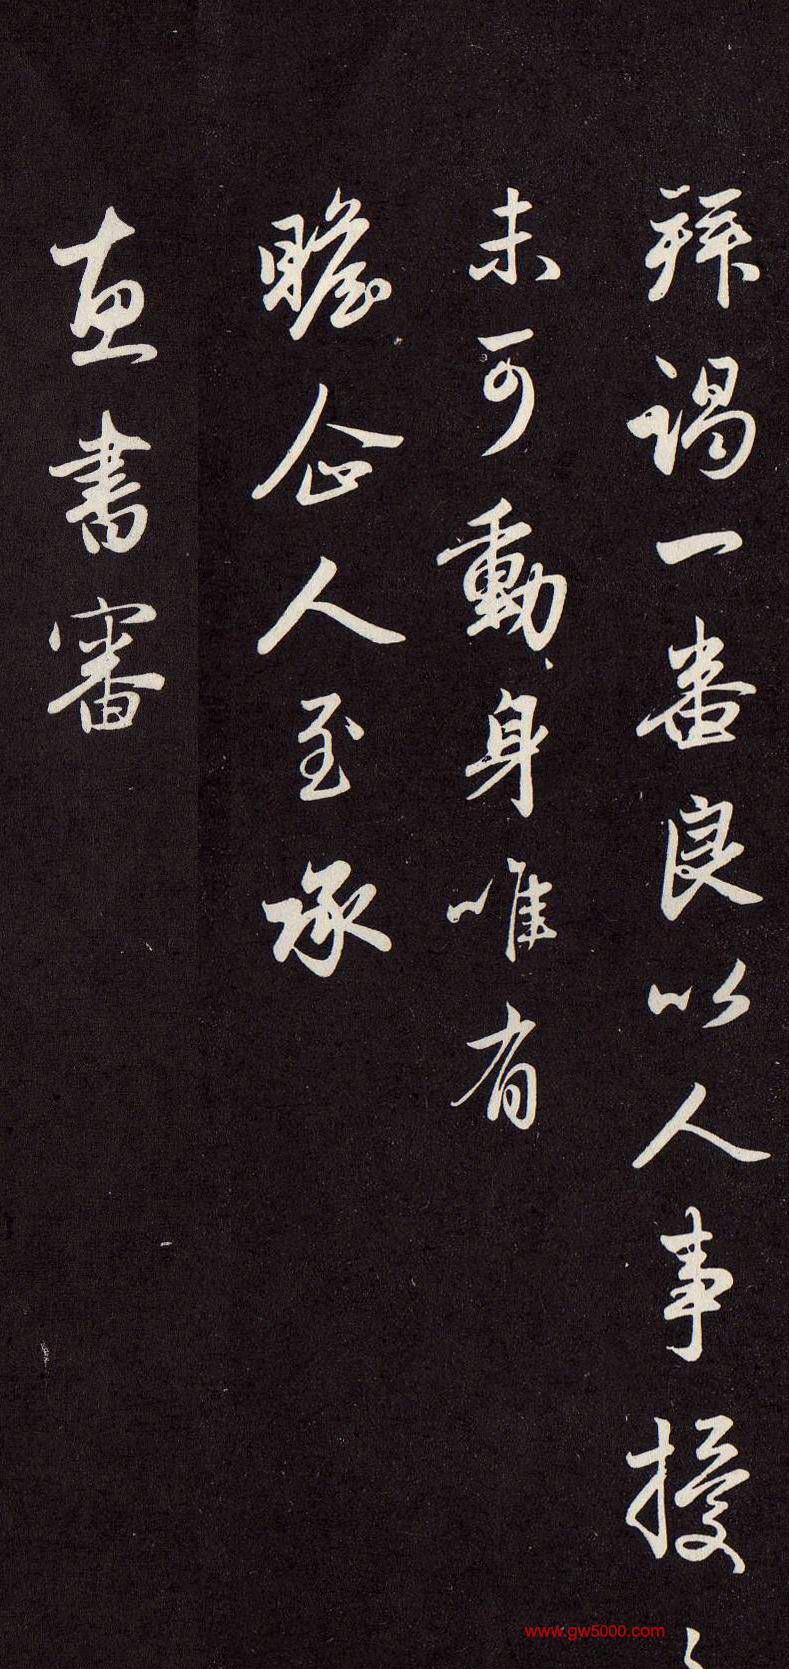 拜謁一番良以人事擾
未可動身唯有
瞻企人至承
惠書審
www.gw5000.com